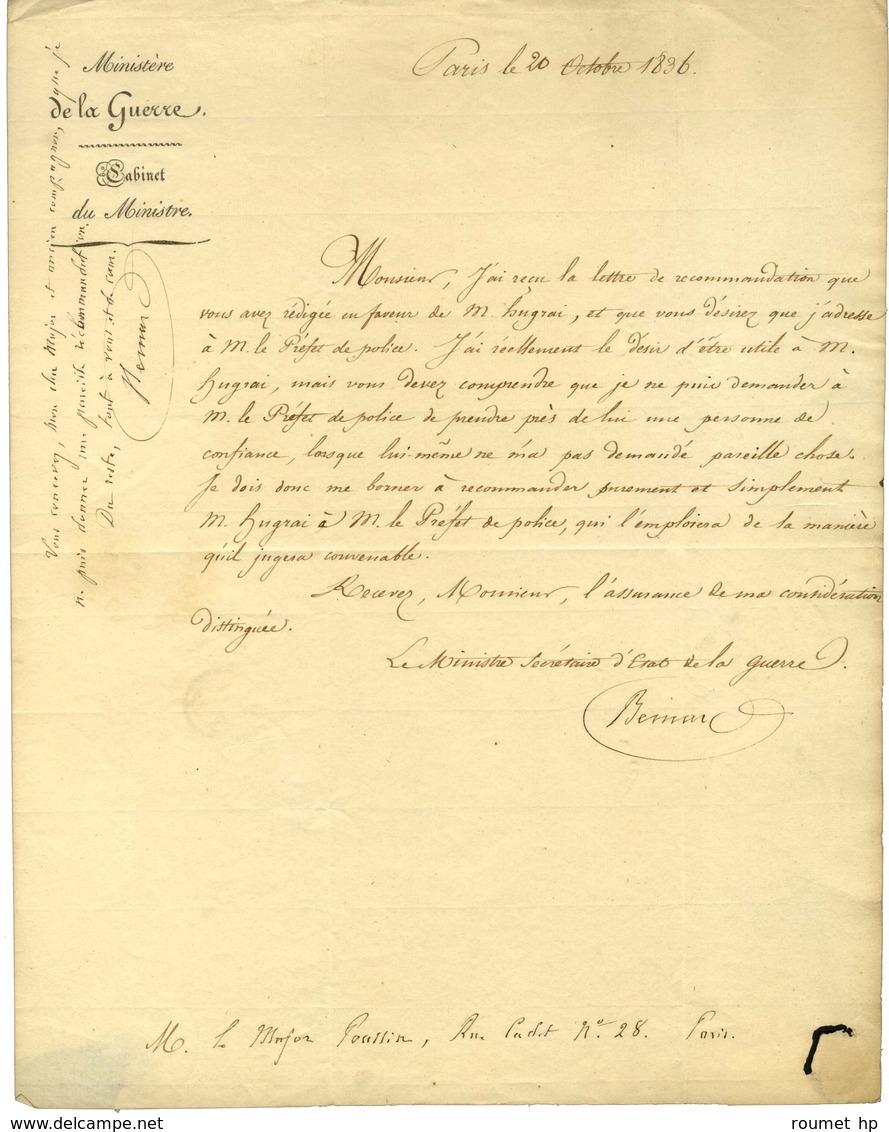 Ministère
de la Guerre.
Cabinet
du Ministre.
Paris le 20 Octobre 1836.
Monsieur, J'ai reçu la lettre de recommandation que
vous avez rédigée en faveur de M. hugrai, et que vous désirez que j'adresse
à M. le Préfet de police. J'ai réellement le désir d'être utile à M.
hugrai, mais vous devez comprendre que je ne puis demander à
M. le Préfet de police de prendre près de lui une personne de
confiance, lorsque lui-même ne m'a pas demandé pareille chose.
Je dois donc me borner à recommander purement et simplement
M. hugrai à M. le Préfet de police, qui l'emploiera de la manière
qu'il jugera convenable.
Recevez, Monsieur, l'assurance de ma considération
distinguée.
Le Ministre Secrétaire d'Etat de la guerre.
Bernard
Vous concevez, mon cher Major et ancien compagnon, que je
ne puis donner une pareille recommandation.
Du reste, tout à vous et de cœur.
Bernard
M. le Major Poussin, Rue Cadet No. 28. Paris.
roumet hp